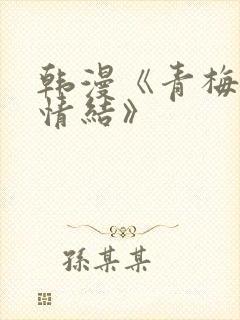 韩漫《青梅
情結》
孫某某